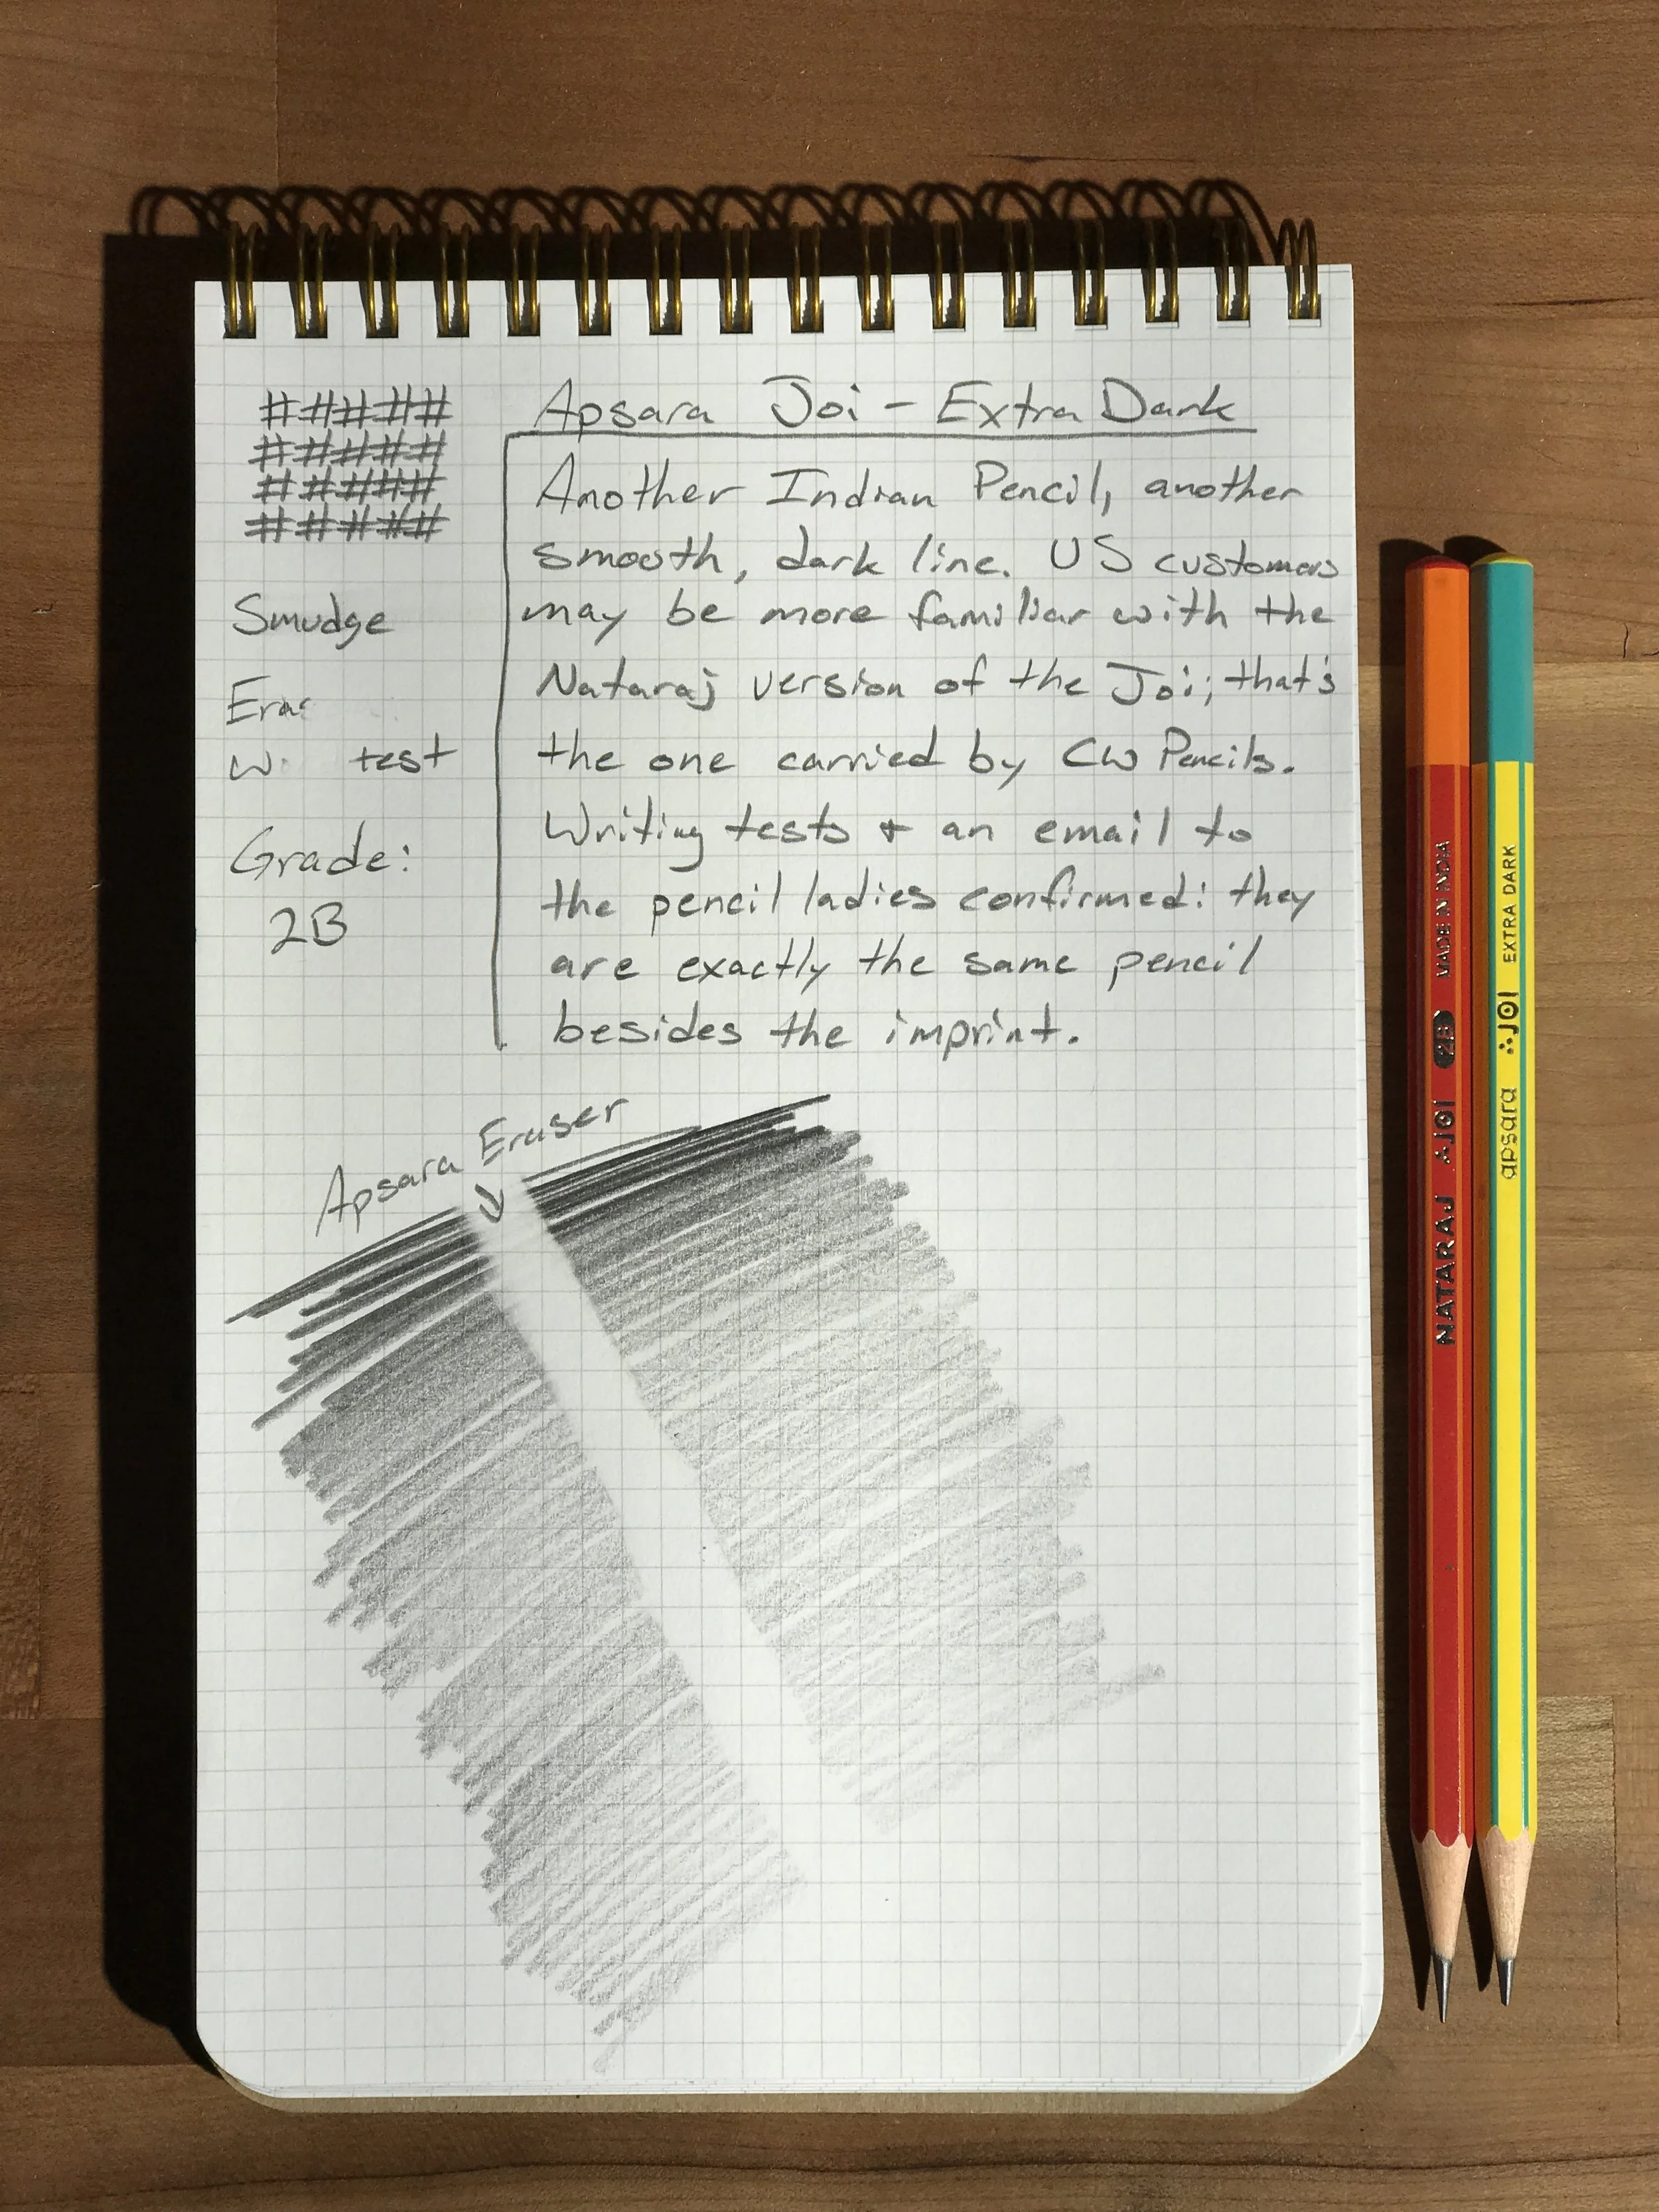 Apsara Joi - Extra Dark
Another Indian Pencil, another
smooth, dark line. US customers
may be more familiar with the
Nataraj version of the Joi; that's
the one carried by CW Pencils.
Writing tests + an email to
the pencil ladies confirmed: they
are exactly the same pencil
besides the imprint.
# # # # #
# # # # #
# # # # #
# # # # #
Smudge
test
Grade:
2B
Apsara Eraser
NATARAJ JOI 2B MADE IN INDIA
apsara JOI EXTRA DARK